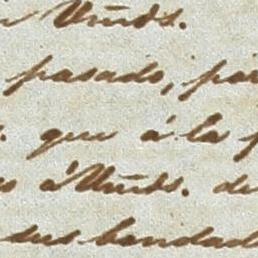 Vmds.
pasado, par
que á la
á Vmds. de
sus bondad